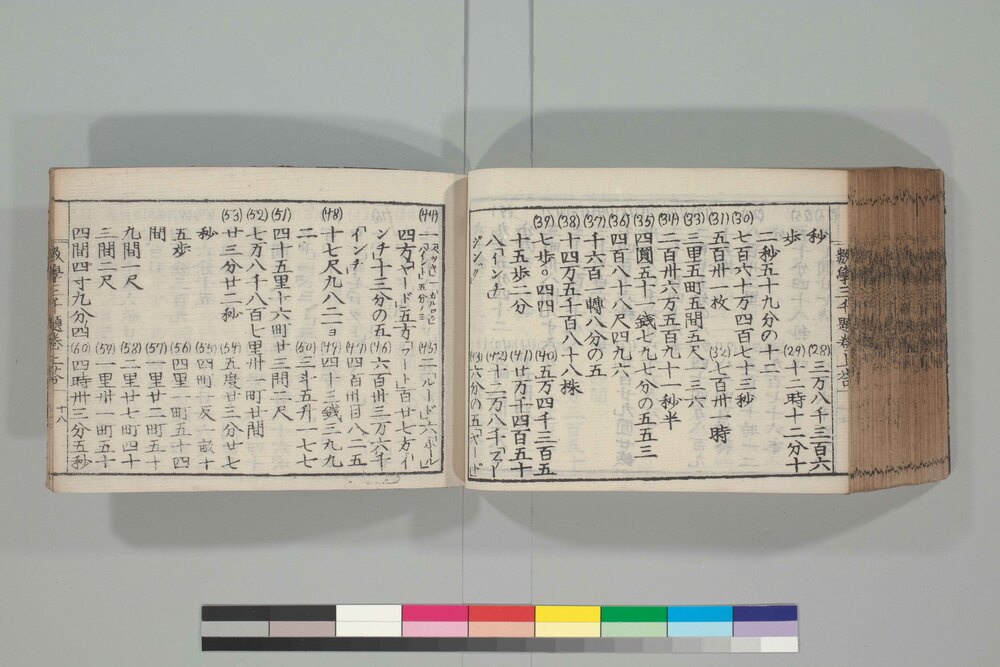 秒 (28) 三万八千三百六
歩 (29) 十二時十二分十
二秒五十九分の十二
(30) 七百六十万四百七十三秒
(31) 五百卅一枚 (32) 七百卅一時
(33) 三里五町五間五尺、三六
(34) 二百卅六万五百九十一秒半
(35) 四圓五十一錢七九七分の五五三
(36) 四百八十八尺四九六
(37) 千六百一轉八分の五
(38) 十四万五千百八十八株
(39) 七歩。四四 (40) 五万四千三百五
十五歩二分 (41) 廿万千四百五十
八「インチ」 (42) 十二万八千「マー
ジン」 (43) 六分の五「ヤード」
四方「ヤード」五方「フート」百廿七方「イ
ンチ」十三分の五 (46) 六百卅三万六千
「インチ」 (47) 四百卅目八二五
(48) 十七尺九八二ヨ (49) 四十三錢三九九
二 (50) 三斗五升一七七
(51) 四十五里十六町廿三間二尺
(52) 七万八千八百七里卅一町廿間
(53) 廿三分廿二秒 (54) 五度廿三分廿七
秒 (55) 四町一反一畝十
五歩 (56) 四里一町五十四
間 (57) 一里廿二町五十
九間一尺 (58) 二里廿七町四十
三間二尺 (59) 一里卅一町五十
四間四寸九分四 (60) 四時卅三分五秒
十八